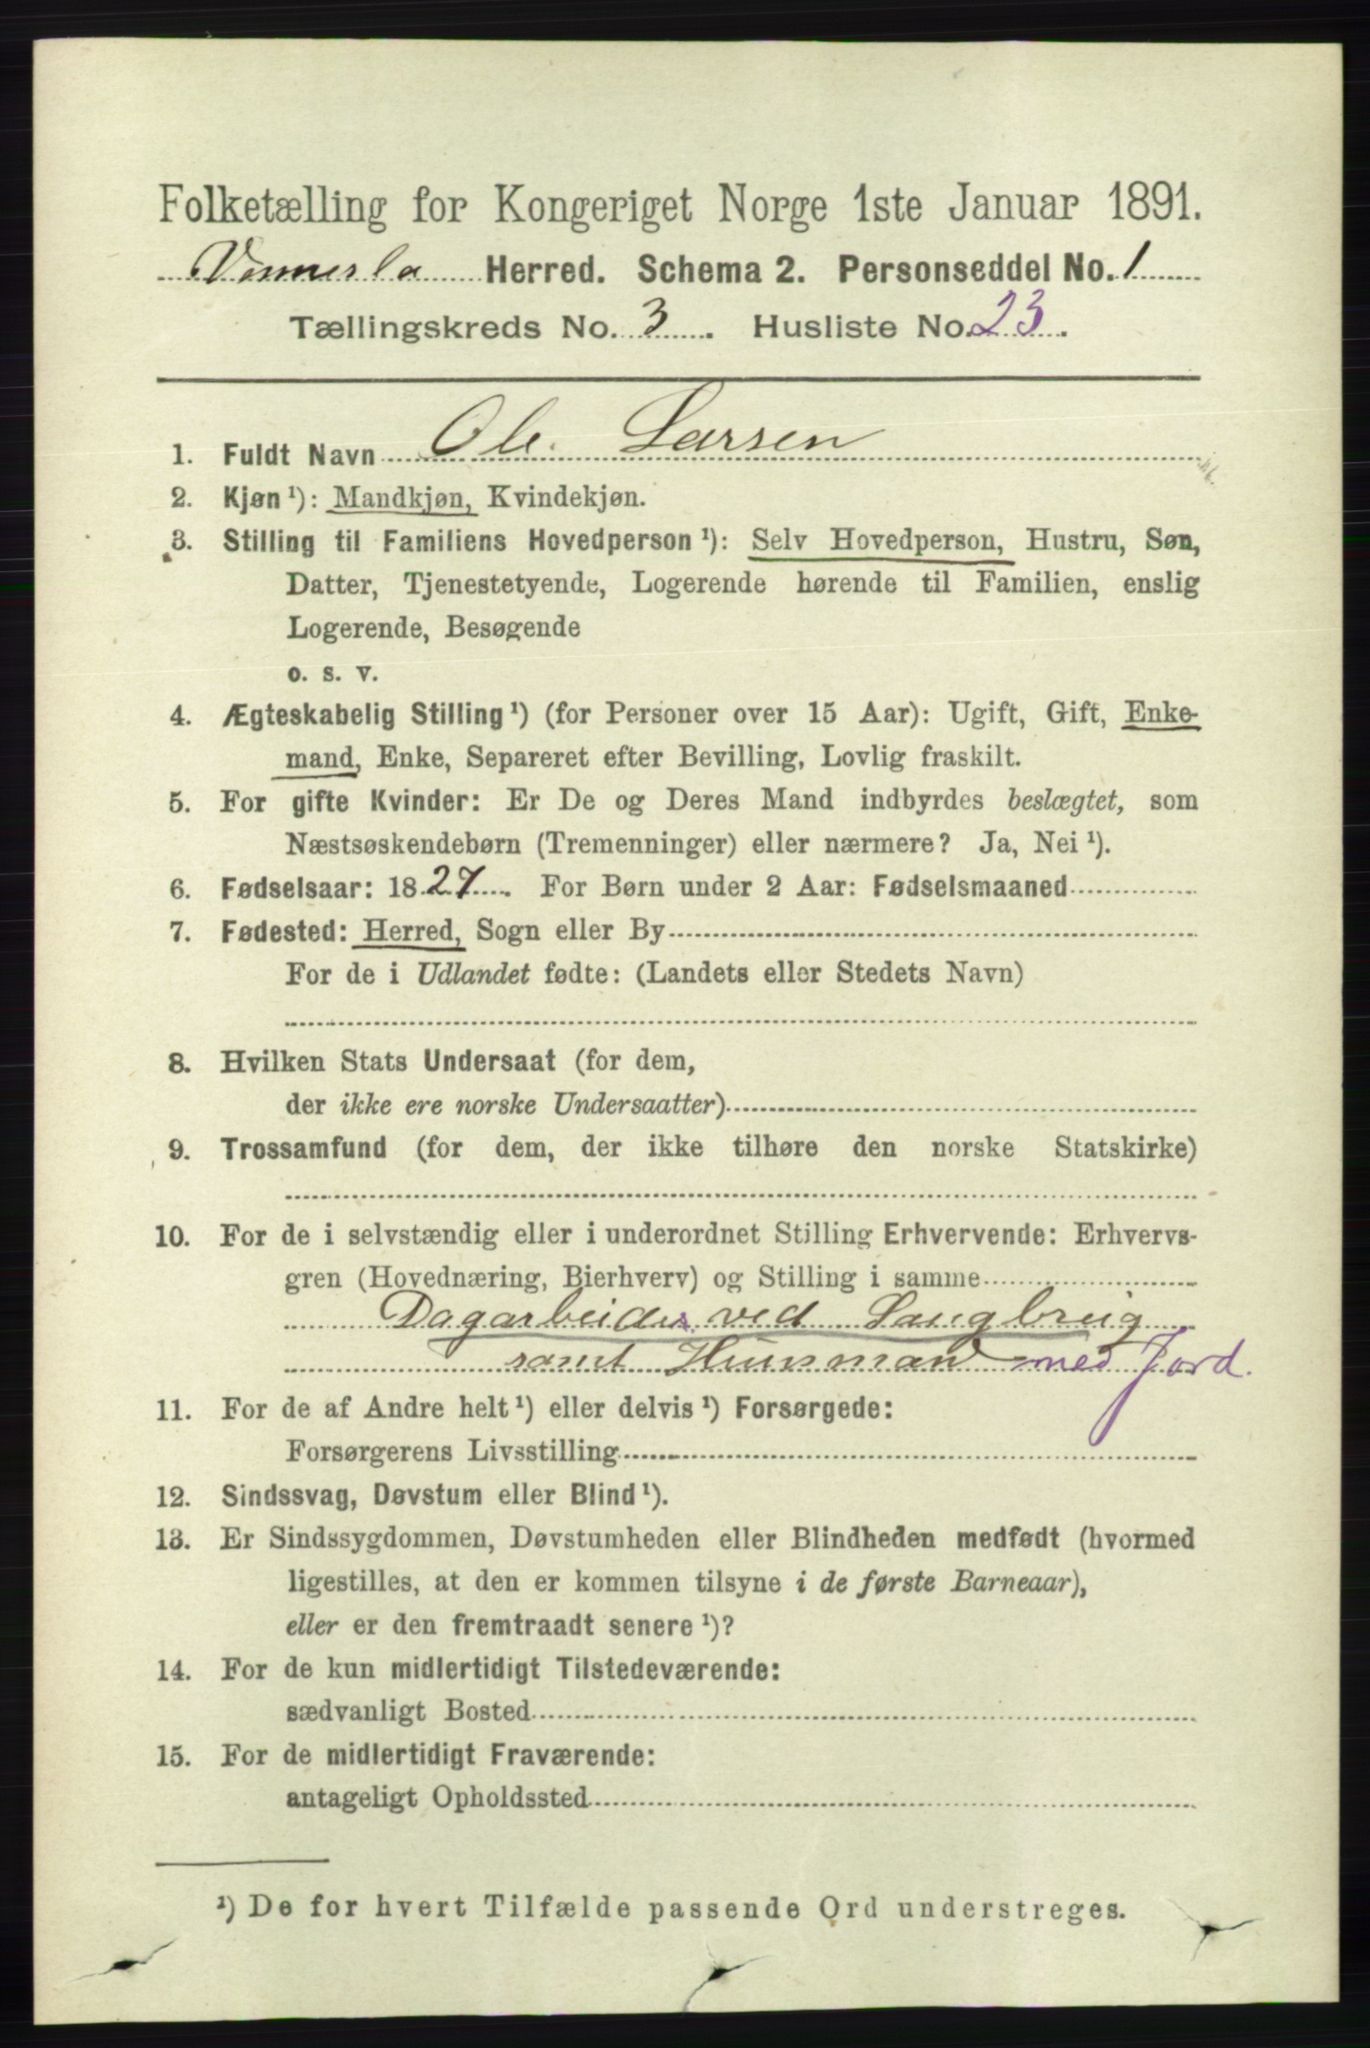 Folketælling for Kongeriget Norge 1ste Januar 1891.
Vennesla Herred. Schema 2. Personseddel No. 1
Tællingskreds No. 3. Husliste No. 23.
1. Fuldt Navn Ole Larsen
2. Kjøn ¹): Mandkjøn, Kvindekjøn.
3. Stilling til Familiens Hovedperson ¹): Selv Hovedperson, Hustru, Søn,
Datter, Tjenestetyende, Logerende hørende til Familien, enslig
Logerende, Besøgende
o. s. v.
4. Ægteskabelig Stilling ¹) (for Personer over 15 Aar): Ugift, Gift, Enke-
mand, Enke, Separeret efter Bevilling, Lovlig fraskilt.
5. For gifte Kvinder: Er De og Deres Mand indbyrdes beslægtet, som
Næstsøskendebørn (Tremenninger) eller nærmere? Ja, Nei ¹).
6. Fødselsaar: 1827. For Børn under 2 Aar: Fødselsmaaned
7. Fødested: Herred, Sogn eller By
For de i Udlandet fødte: (Landets eller Stedets Navn)
8. Hvilken Stats Undersaat (for dem,
der ikke ere norske Undersaatter)
9. Trossamfund (for dem, der ikke tilhøre den norske Statskirke)
10. For de i selvstændig eller i underordnet Stilling Erhvervende: Erhvervs-
gren (Hovednæring, Bierhverv) og Stilling i samme
Dagarbeider ved Saugbrug
samt Huusmand med Jord.
11. For de af Andre helt ¹) eller delvis ¹) Forsørgede:
Forsørgerens Livsstilling
12. Sindssvag, Døvstum eller Blind ¹).
13. Er Sindssygdommen, Døvstumheden eller Blindheden medfødt (hvormed
ligestilles, at den er kommen tilsyne i de første Barneaar),
eller er den fremtraadt senere ¹)?
14. For de kun midlertidigt Tilstedeværende:
sædvanligt Bosted
15. For de midlertidigt Fraværende:
antageligt Opholdssted
¹) De for hvert Tilfælde passende Ord understreges.